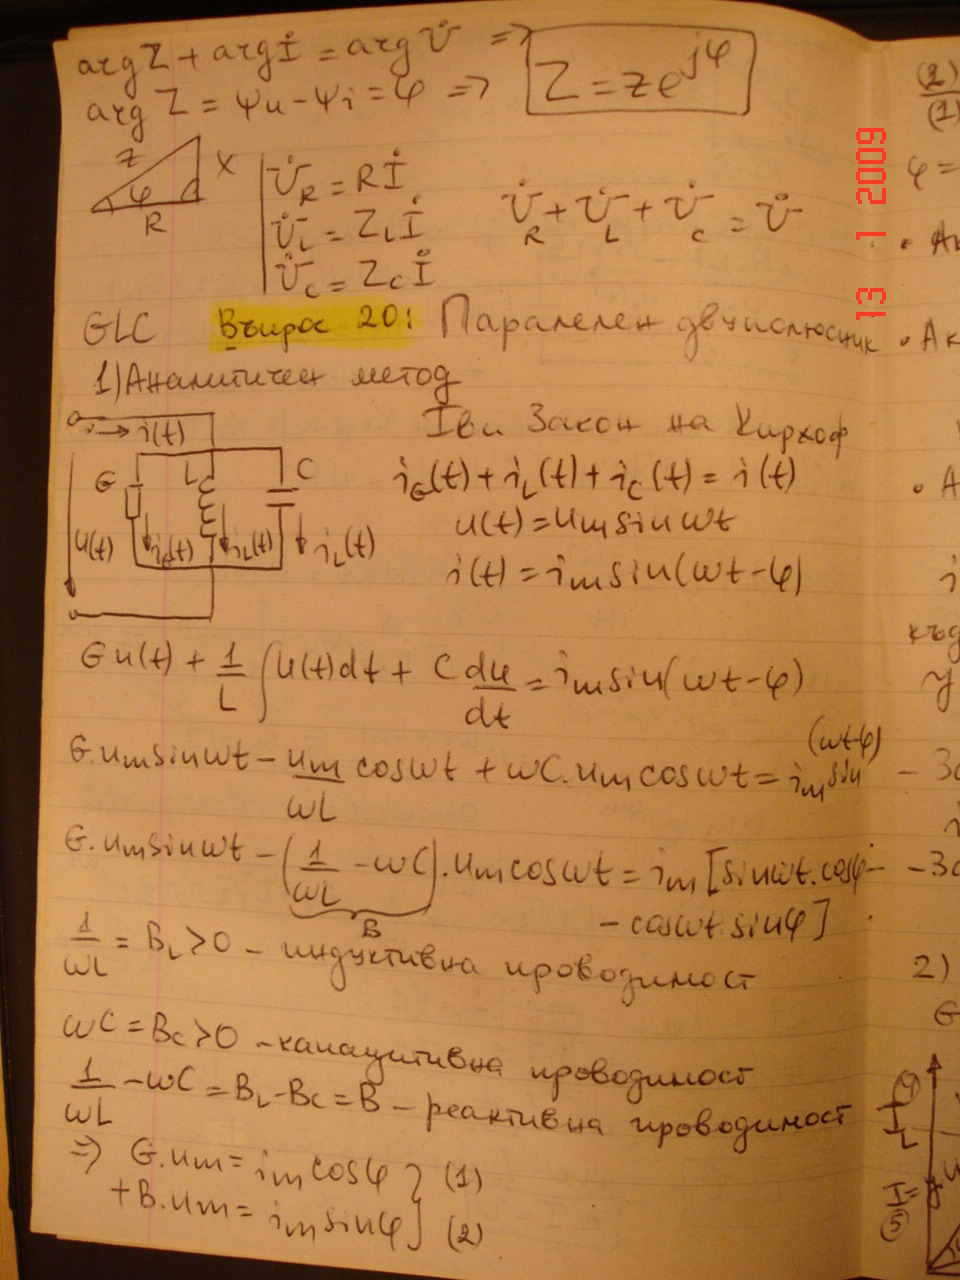 argZ + argİ = argU̇ =>
Z = ze^jφ
arg Z = Ψu - Ψi = φ =>
z
X
φ
R
U̇_R = Rİ
U̇_L = Z_L İ
U̇_C = Z_C İ
U̇_R + U̇_L + U̇_C = U̇
13 1 2009
GLC Въпрос 20: Паралелен двуполюсник
1) Аналитичен метод
i(t)
G
L
C
u(t)
i_G(t)
i_L(t)
i_L(t)
I-ви Закон на Кирхоф
i_G(t) + i_L(t) + i_C(t) = i(t)
u(t) = u_m sin ωt
i(t) = i_m sin(ωt - φ)
Gu(t) + 1/L ∫u(t)dt + C du/dt = i_m sin(ωt - φ)
G.u_m sin ωt - u_m/ωL cos ωt + ωC.u_m cos ωt = i_m sin (ωt-φ)
G.u_m sin ωt - (1/ωL - ωC).u_m cos ωt = i_m [sin ωt.cosφ -
B
- cos ωt.sinφ]
1/ωL = B_L > 0 - индуктивна проводимост
ωC = B_C > 0 - капацитивна проводимост
1/ωL - ωC = B_L - B_C = B - реактивна проводимост
=> G.u_m = i_m cosφ } (1)
+B.u_m = i_m sinφ } (2)
(2)
(1)
φ =
• Ак
• Ак
• А
i
къд
y
- 3
- 3
2)
G